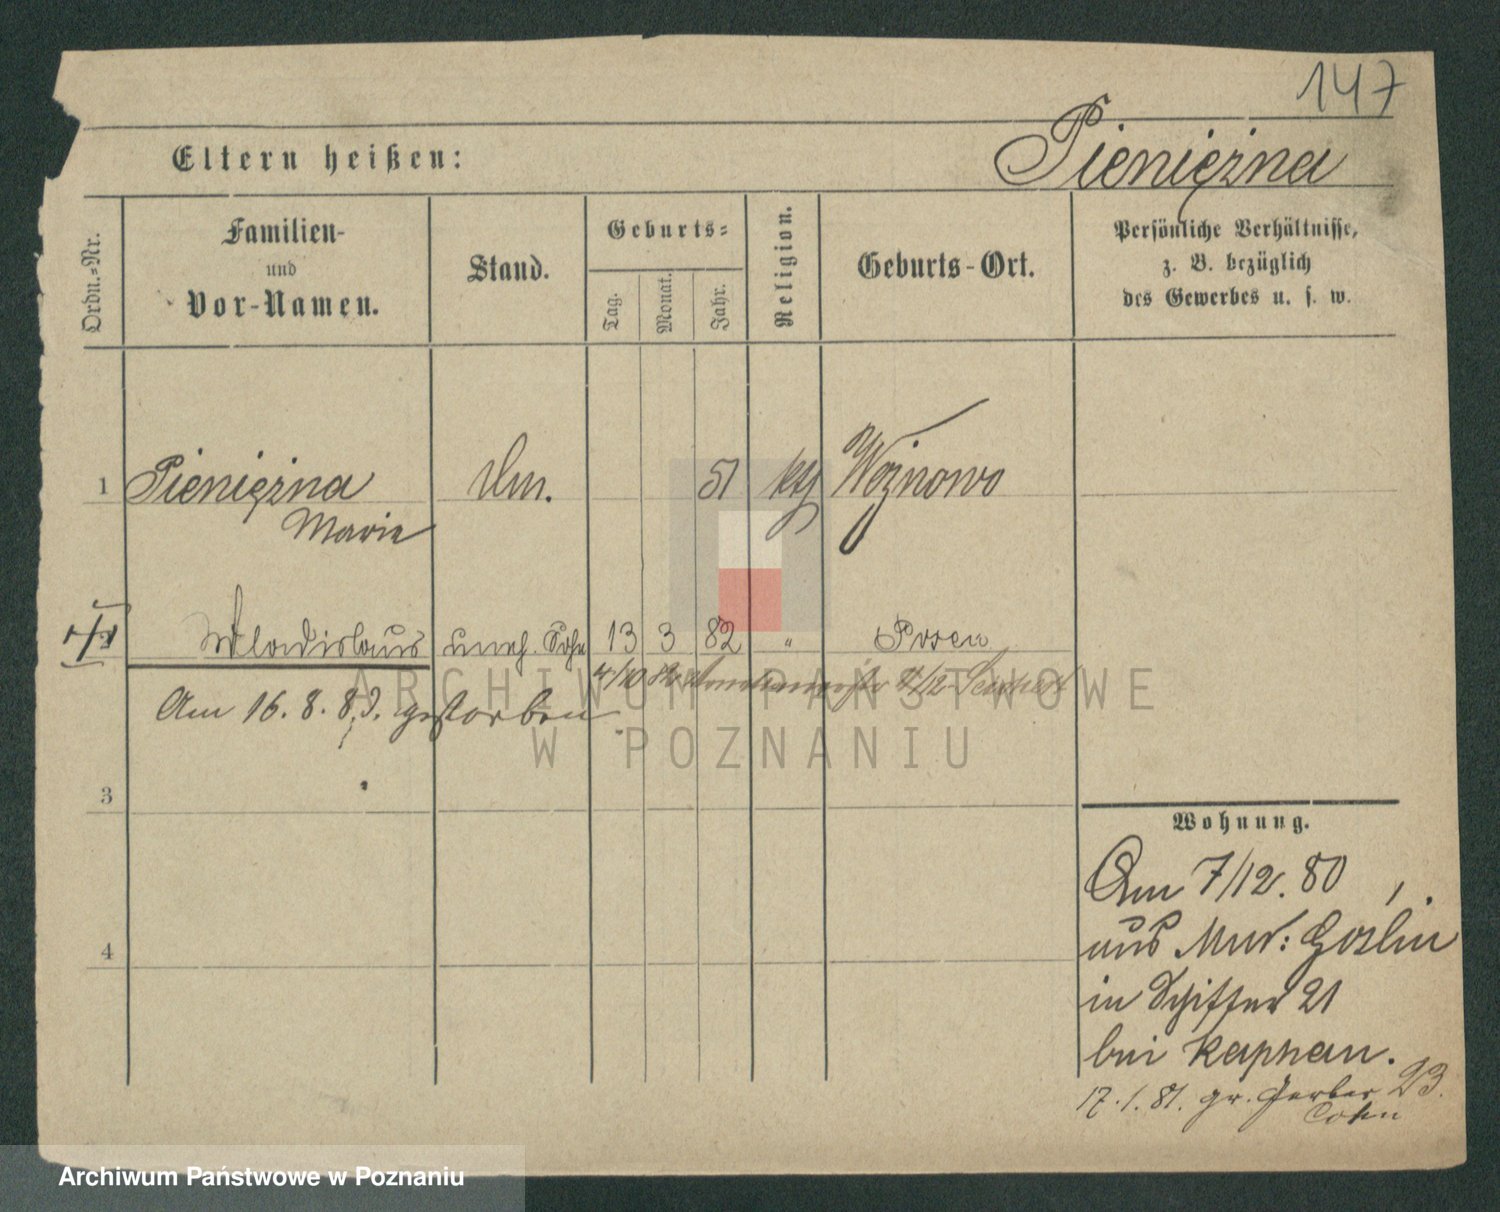 147
Eltern heißen:
Pienięzna
Ordn.-Nr.
Familien-
und
Vor-Namen.
Stand.
Geburts-
Tag.
Monat.
Jahr.
Religion.
Geburts-Ort.
Persönliche Verhältnisse,
z. B. bezüglich
des Gewerbes u. s. w.
1 Pienięzna 51 kth Woznowo
Marie
Wladislaus uneh. Sohn 13 3 82 " Posen
Am 16. 8. 82. gestorben
3
4
Wohnung.
Am 7/12. 80
aus Mur: Goslin
in Schiffer 21
bei Kaphan.
17.1.81. gr. Gerber 23.
Cohn
ARCHIWUM PAŃSTWOWE
W POZNANIU
Archiwum Państwowe w Poznaniu